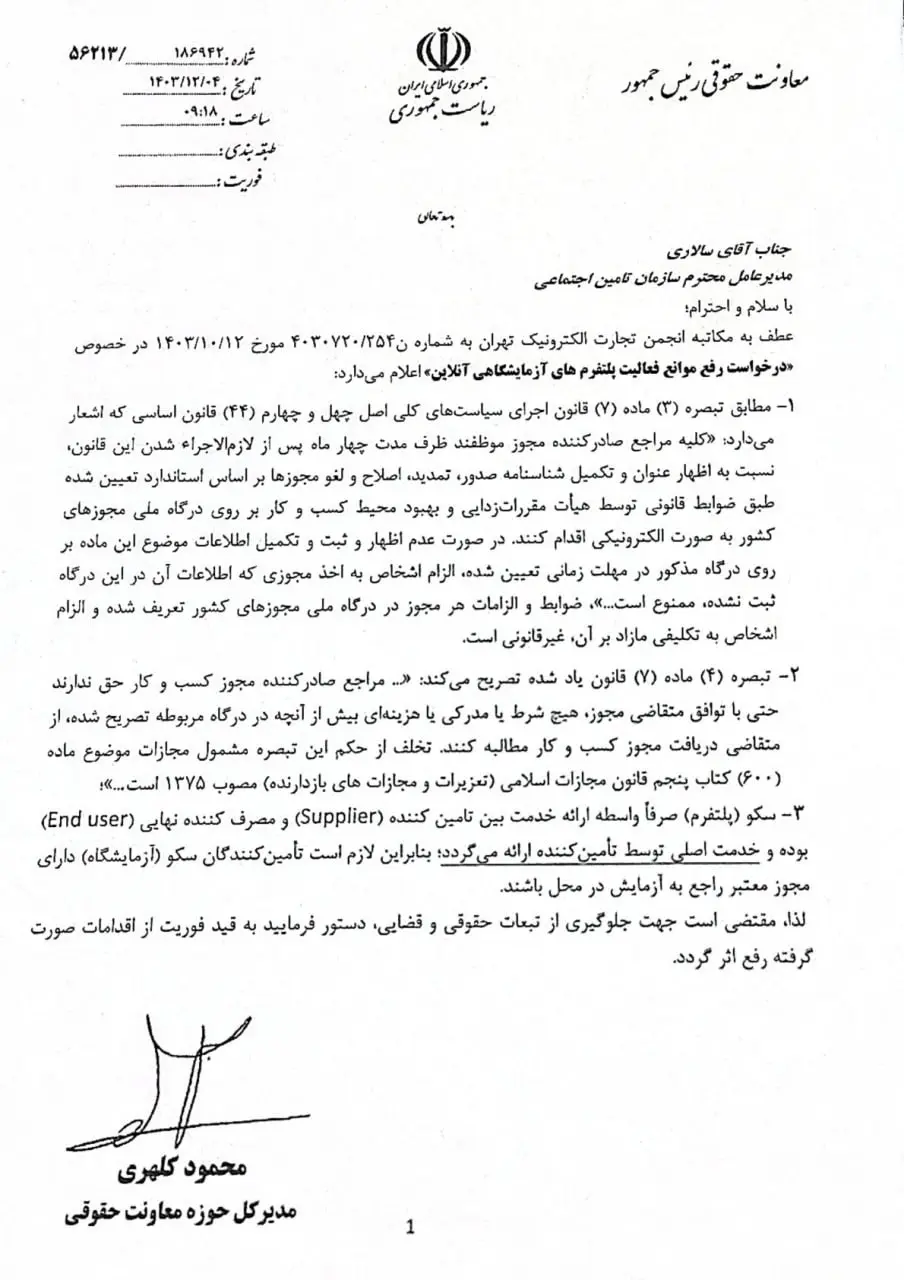 معاونت حقوقی رئیس جمهور
جمهوری اسلامی ایران
ریاست جمهوری
شماره: ۱۸۶۹۴۲/۵۶۲۱۳
تاریخ: ۱۴۰۳/۱۲/۰۴
ساعت: ۰۹:۱۸
طبقه بندی:
فوریت:
بسمه تعالی
جناب آقای سالاری
مدیرعامل محترم سازمان تامین اجتماعی
با سلام و احترام؛
عطف به مکاتبه انجمن تجارت الکترونیک تهران به شماره ن۴۰۳۰۷۲۰/۲۵۴ مورخ ۱۴۰۳/۱۰/۱۲ در خصوص
«درخواست رفع موانع فعالیت پلتفرم های آزمایشگاهی آنلاین» اعلام می‌دارد:
۱- مطابق تبصره (۳) ماده (۷) قانون اجرای سیاست‌های کلی اصل چهل و چهارم (۴۴) قانون اساسی که اشعار
می‌دارد: «کلیه مراجع صادرکننده مجوز موظفند ظرف مدت چهار ماه پس از لازم‌الاجراء شدن این قانون،
نسبت به اظهار عنوان و تکمیل شناسنامه صدور، تمدید، اصلاح و لغو مجوزها بر اساس استاندارد تعیین شده
طبق ضوابط قانونی توسط هیأت مقررات‌زدایی و بهبود محیط کسب و کار بر روی درگاه ملی مجوزهای
کشور به صورت الکترونیکی اقدام کنند. در صورت عدم اظهار و ثبت و تکمیل اطلاعات موضوع این ماده بر
روی درگاه مذکور در مهلت زمانی تعیین شده، الزام اشخاص به اخذ مجوزی که اطلاعات آن در این درگاه
ثبت نشده، ممنوع است...»، ضوابط و الزامات هر مجوز در درگاه ملی مجوزهای کشور تعریف شده و الزام
اشخاص به تکلیفی مازاد بر آن، غیرقانونی است.
۲- تبصره (۴) ماده (۷) قانون یاد شده تصریح می‌کند: «... مراجع صادرکننده مجوز کسب و کار حق ندارند
حتی با توافق متقاضی مجوز، هیچ شرط یا مدرکی یا هزینه‌ای بیش از آنچه در درگاه مربوطه تصریح شده، از
متقاضی دریافت مجوز کسب و کار مطالبه کنند. تخلف از حکم این تبصره مشمول مجازات موضوع ماده
(۶۰۰) کتاب پنجم قانون مجازات اسلامی (تعزیرات و مجازات های بازدارنده) مصوب ۱۳۷۵ است...»؛
۳- سکو (پلتفرم) صرفاً واسطه ارائه خدمت بین تامین کننده (Supplier) و مصرف کننده نهایی (End user)
بوده و خدمت اصلی توسط تأمین‌کننده ارائه می‌گردد؛ بنابراین لازم است تأمین‌کنندگان سکو (آزمایشگاه) دارای
مجوز معتبر راجع به آزمایش در محل باشند.
لذا، مقتضی است جهت جلوگیری از تبعات حقوقی و قضایی، دستور فرمایید به قید فوریت از اقدامات صورت
گرفته رفع اثر گردد.
محمود کلهری
مدیرکل حوزه معاونت حقوقی
1